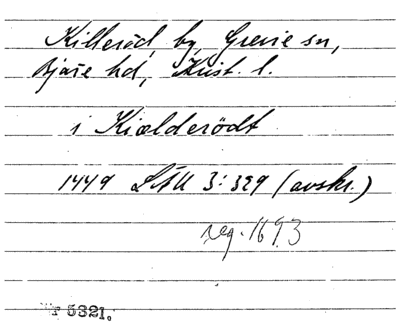 Killeröd, by, Grevie sn,
Bjäre hd, Krist. l.
i Kiælderödt
1449 LÄU 3:329 (avskr.)
reg. 1693
Nr 5321.